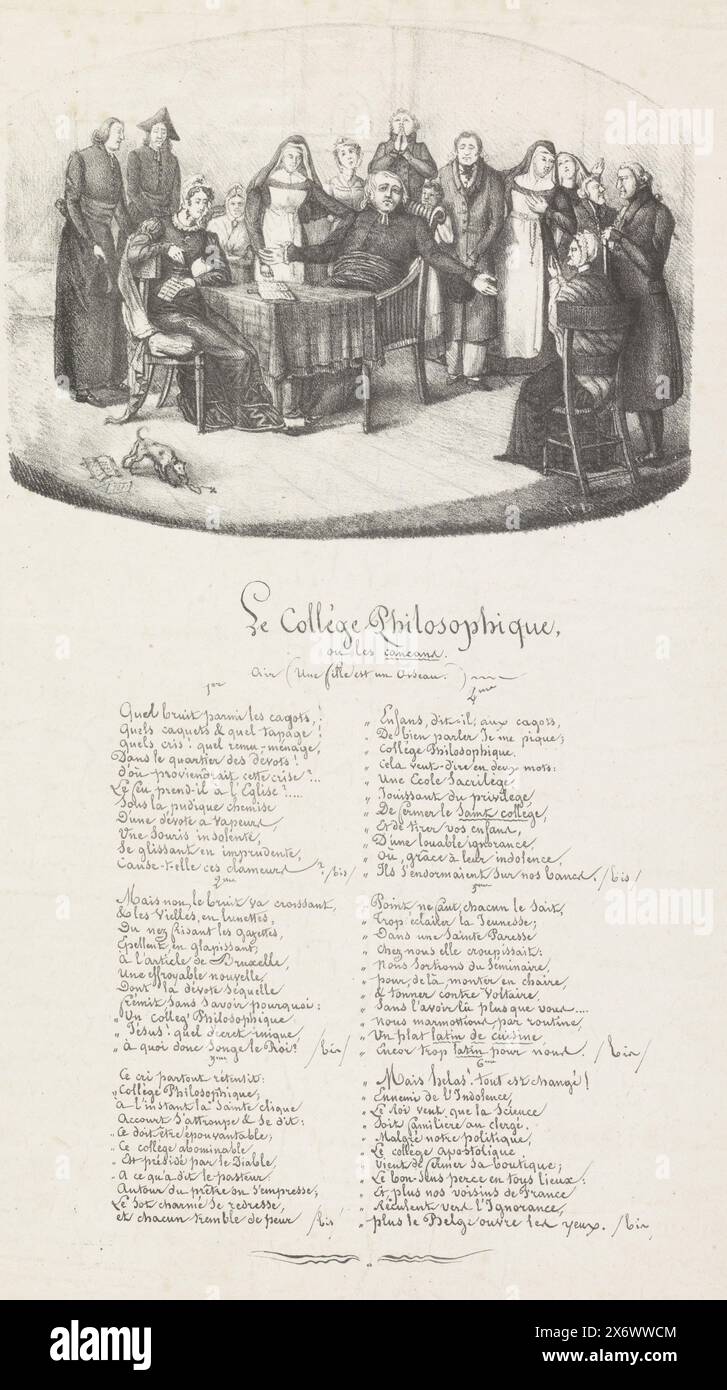 Le Collége Philosophique,
ou les cancans.
Air (Une fille est un Oiseau.)
1er
Quel bruit parmi les cagots,!
Quels caquets & quel tapage!
Quels cris! quel remu-ménage,
Dans le quartier des dévots!
D'où proviendrait cette crise?...
Le feu prend-il à l'Eglise?....
Sous la pudique chemise
D'une dévote à vapeurs,
Une Souris insolente,
Se glissant en imprudente,
Cause-t-elle ces clameurs? /bis/
2eme
Mais non, le bruit va croissant,
& les Vielles, en lunettes,
Du nez frisant les gazettes,
Epellent, en glapissant;
à l'article de Bruxelle,
Une effroyable nouvelle,
Dont la dévote séquelle
Frémit sans savoir pourquoi:
" Un colleg' Philosophique
" Jésus! quel décret inique,
" à quoi donc Songe le Roi? /bis/
3eme
Ce cri partout retentit:
" Collége Philosophique;
à l'instant la Sainte clique
Accourt S'attroupe & Se dit:
" Ce doit être épouvantable;
" Ce collége abominable
" Est présidé par le Diable,
" A ce qu'a dit le pasteur:
Autour du prêtre on S'empresse;
Le Sot charmé Se redresse,
et chacun tremble de peur /bis/
4eme
" Enfans, dit-il, aux cagots,
" De bien parler Je me pique;
" Collége Philosophique.
" Cela veut-dire en deux mots:
" Une Ecole Sacrilége,
" Jouissant du privilége,
" De fermer le Saint collége,
" Et de tirer vos enfans,
" D'une louable ignorance,
" Où, grâce à leur indolence,
" Ils S'endormaient Sur nos bancs. /bis/
5eme
Point ne faut, chacun le Sait,
" Trop éclairer la Jeunesse;
" Dans une Sainte Paresse
" Chez nous elle croupissait:
" Nous Sortions du Séminaire,
" pour, de là, monter en chaire,
" & tonner contre Voltaire,
" Sans l'avoir lû plus que vous....
" Nous marmottions, par routine,
" Un plat latin de cuisine,
" Encor trop latin pour nous. /bis/
6eme
" Mais helas! tout est changé!
" Ennemi de l'Indolence,
" Le Roi veut que la Science
" Soit familière au clergé.
" Malgré notre politique,
" Le collége apostolique
" Vient de fermer Sa boutique;
" Le bon-sens perce en tous lieux:
" Et plus nos voisins de France
" Réculent vers l'Ignorance,
" plus le Belge ouvre les yeux. /bis/
alamy
Image ID: 2X6WWCM
www.alamy.com